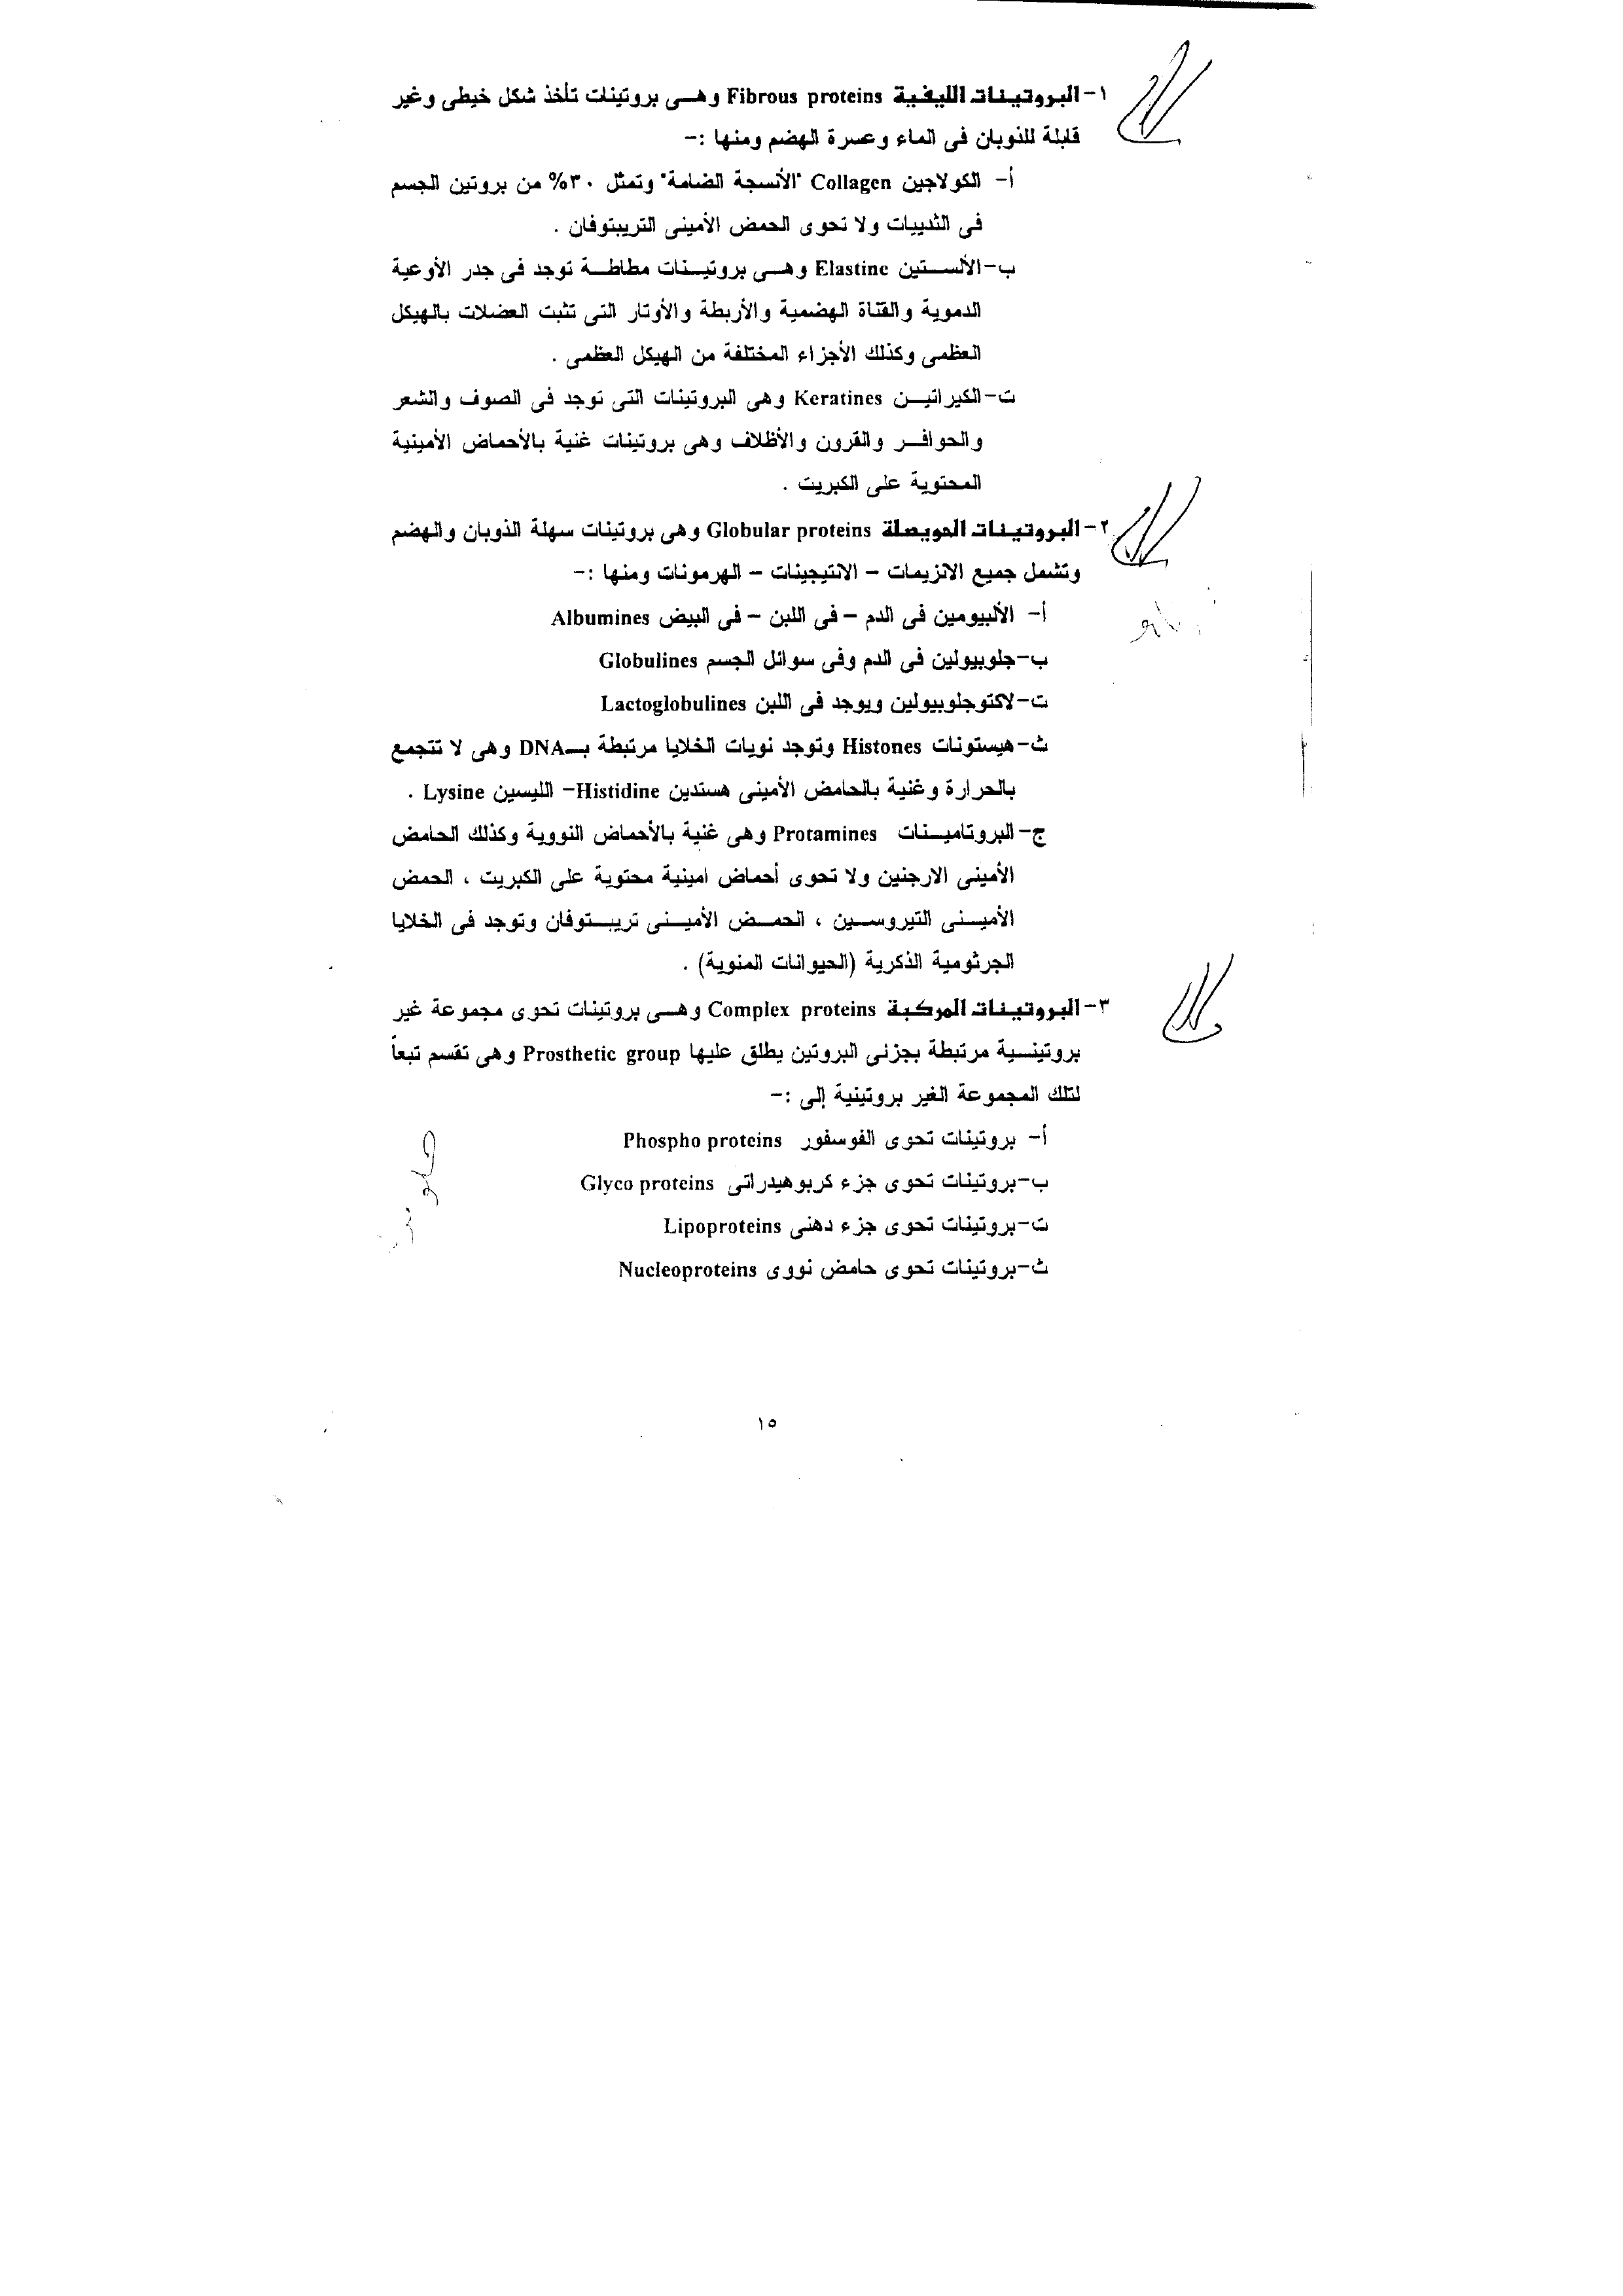 ١- البروتينات الليفية Fibrous proteins وهى بروتينات تأخذ شكل خيطى وغير
قابلة للذوبان فى الماء وعسرة الهضم ومنها :-
أ- الكولاجين Collagen "الأنسجة الضامة" وتمثل ٣٠% من بروتين الجسم
فى الثدييات ولا تحوى الحمض الأمينى التريبتوفان .
ب- الألستين Elastine وهى بروتينات مطاطة توجد فى جدر الأوعية
الدموية والقناة الهضمية والأربطة والأوتار التى تثبت العضلات بالهيكل
العظمى وكذلك الأجزاء المختلفة من الهيكل العظمى .
ت- الكيراتين Keratines وهى البروتينات التى توجد فى الصوف والشعر
والحوافر والقرون والأظلاف وهى بروتينات غنية بالأحماض الأمينية
المحتوية على الكبريت .
٢- البروتينات الحويصلة Globular proteins وهى بروتينات سهلة الذوبان والهضم
وتشمل جميع الانزيمات – الانتيجينات – الهرمونات ومنها :-
أ- الألبيومين فى الدم – فى اللبن – فى البيض Albumines
ب- جلوبيولين فى الدم وفى سوائل الجسم Globulines
ت- لاكتوجلوبيولين ويوجد فى اللبن Lactoglobulines
ث- هيستونات Histones وتوجد نويات الخلايا مرتبطة بـDNA وهى لا تتجمع
بالحرارة وغنية بالحامض الأمينى هستدين Histidine – الليسين Lysine .
ج- البروتامينات Protamines وهى غنية بالأحماض النووية وكذلك الحامض
الأمينى الارجنين ولا تحوى أحماض امينية محتوية على الكبريت ، الحمض
الأمينى التيروسين ، الحمض الأمينى تريبتوفان وتوجد فى الخلايا
الجرثومية الذكرية (الحيوانات المنوية) .
٣- البروتينات المركبة Complex proteins وهى بروتينات تحوى مجموعة غير
بروتينية مرتبطة بجزئى البروتين يطلق عليها Prosthetic group وهى تقسم تبعاً
لتلك المجموعة الغير بروتينية إلى :-
أ- بروتينات تحوى الفوسفور Phospho proteins
ب- بروتينات تحوى جزء كربوهيدراتى Glyco proteins
ت- بروتينات تحوى جزء دهنى Lipoproteins
ث- بروتينات تحوى حامض نووى Nucleoproteins
١٥